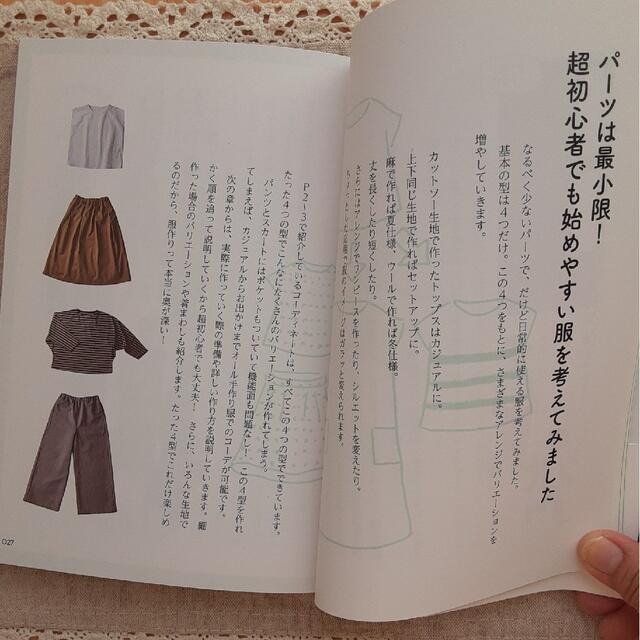 パーツは最小限！
超初心者でも始めやすい服を考えてみました
なるべく少ないパーツで、だけど日常的に使える服を考えてみました。
基本の型は４つだけ。この４つをもとに、さまざまなアレンジでバリエーションを
増やしていきます。
カットソー生地で作ったトップスはカジュアルに。
上下同じ生地で作ればセットアップに。
麻で作れば夏仕様、ウールで作れば冬仕様。
丈を長くしたり短くしたり。
さらにはアレンジでワンピースを作ったり、シルエットを変えたり。
ガラッと変えられます。
P2〜3で紹介しているコーディネートは、すべてこの４つの型でできています。
たった４つの型でこんなにたくさんのバリエーションが作れてしまう。
パンツとスカートにはポケットもついていて機能面も問題なし！　この４型を作れ
てしまえば、カジュアルからお出かけまでオール手作り服でのコーデが可能です。
次の章からは、実際に作っていく際の準備や詳しい作り方を説明していきます。細
かく順を追って説明していくから超初心者でも大丈夫！　さらに、いろんな生地で
作った場合のバリエーションや着まわしも紹介します。たった４型でこれだけ楽しめ
るのだから、服作りって本当に奥が深い！
027